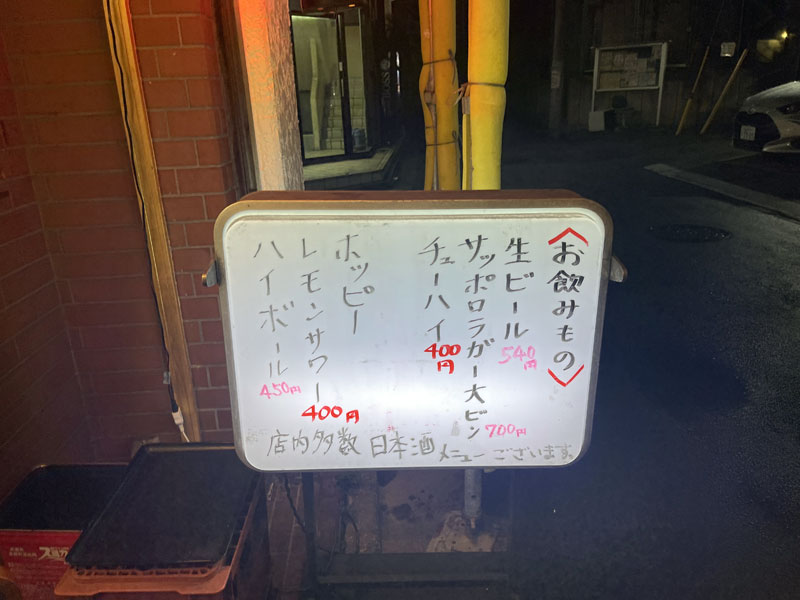 〈お飲みもの〉
生ビール 540円
サッポロラガー大ビン 700円
チューハイ 400円
ホッピー
レモンサワー 400円
ハイボール 450円
店内多数 日本酒 メニューございます。